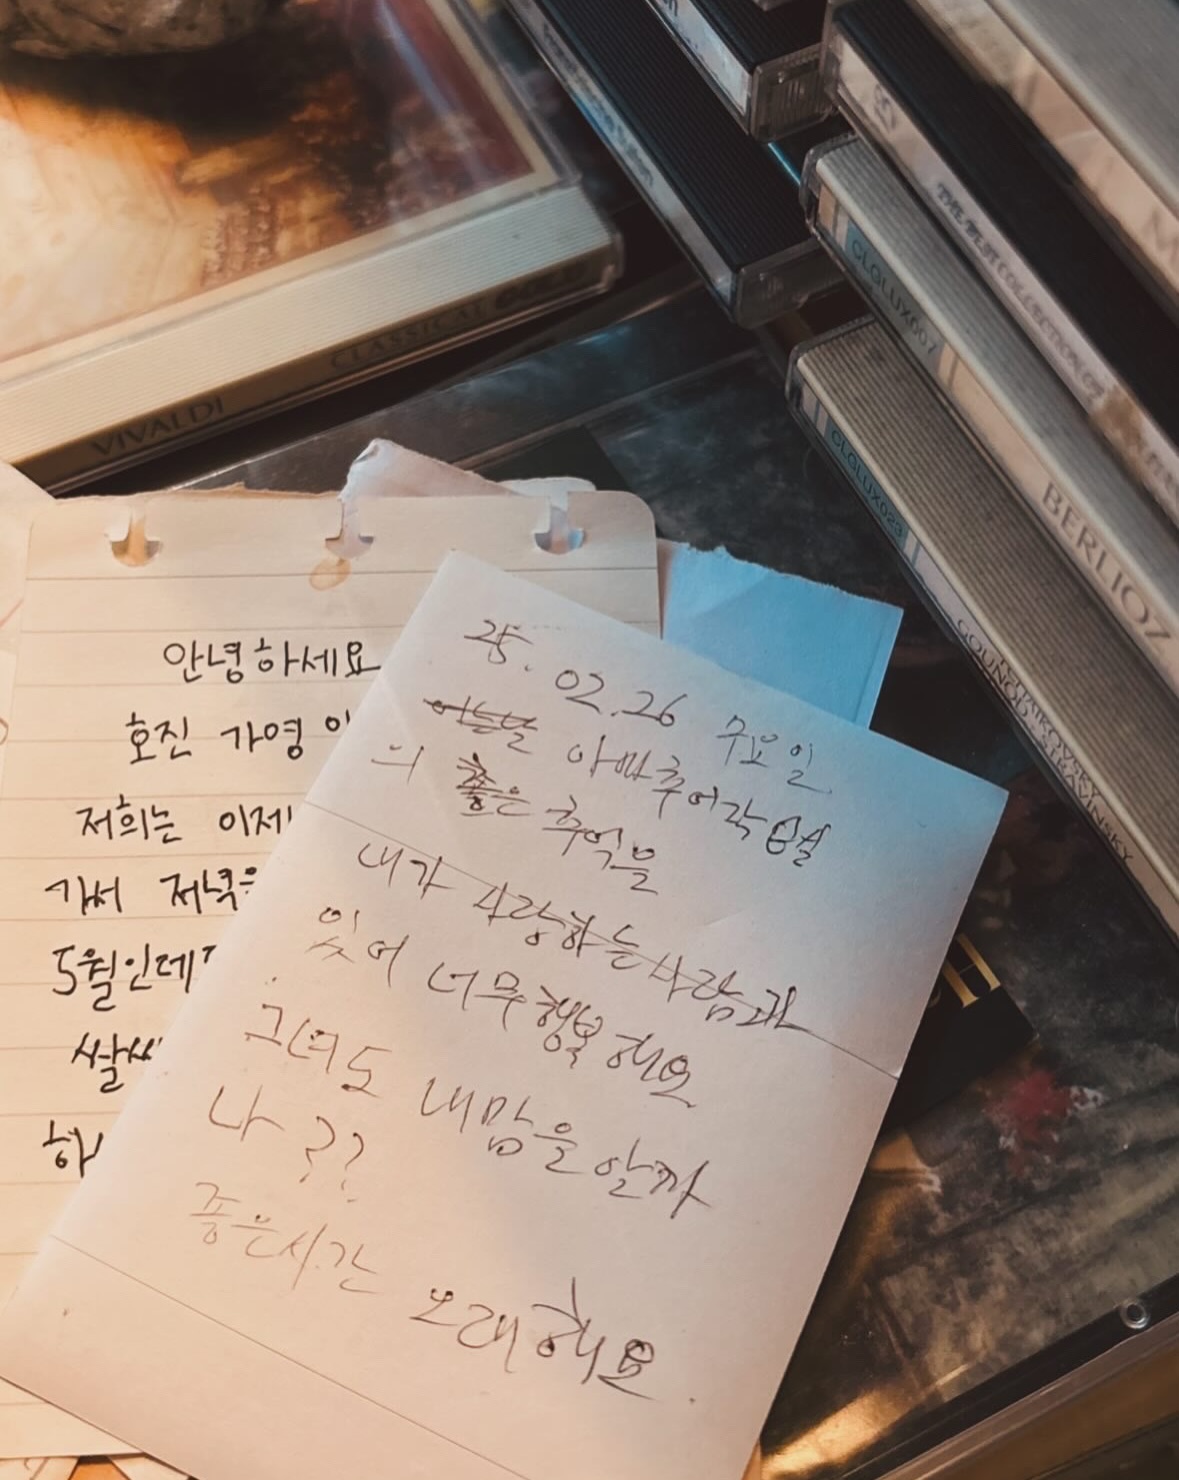 VIVALDI CLASSICAL GOLD
THE BEST COLLECTION OF
GLGLUX007
BERLIOZ
GLGLUX023
GOUNOD STRAVINSKY
안녕하세요
호진 가영
저희는 이제
가서 저녁을
5월인데
하
25. 02.26 수요일
아마추어작
의 좋은 추억을
내가 사랑하는 사람과
있어 너무 행복해요
그녀도 내맘을 알까
나 ??
좋은시간 오래해요.